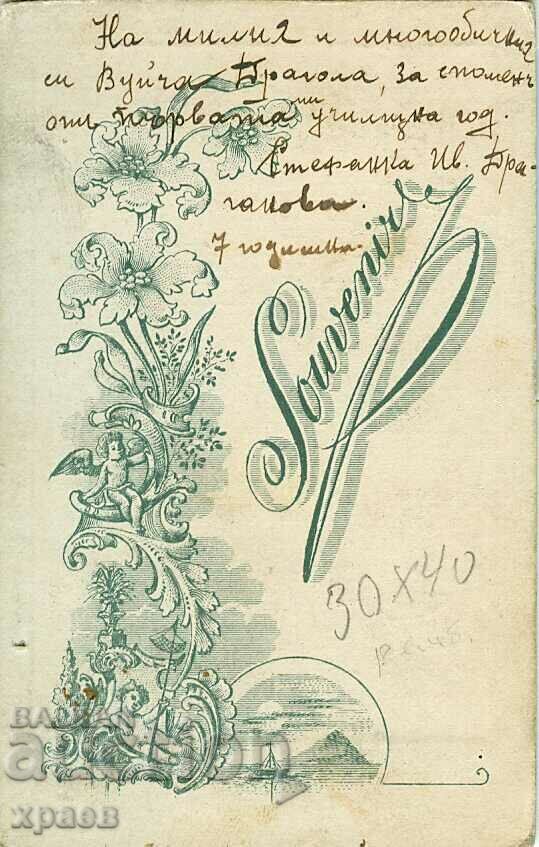 На милия и многообичния
си Вуйча Драгола, за споменъ
отъ първата ми училищна год.
Стефанка Ив. Дра-
ганова.
7 годишна.
Souvenir
30x40
BALKAN
auction
храев